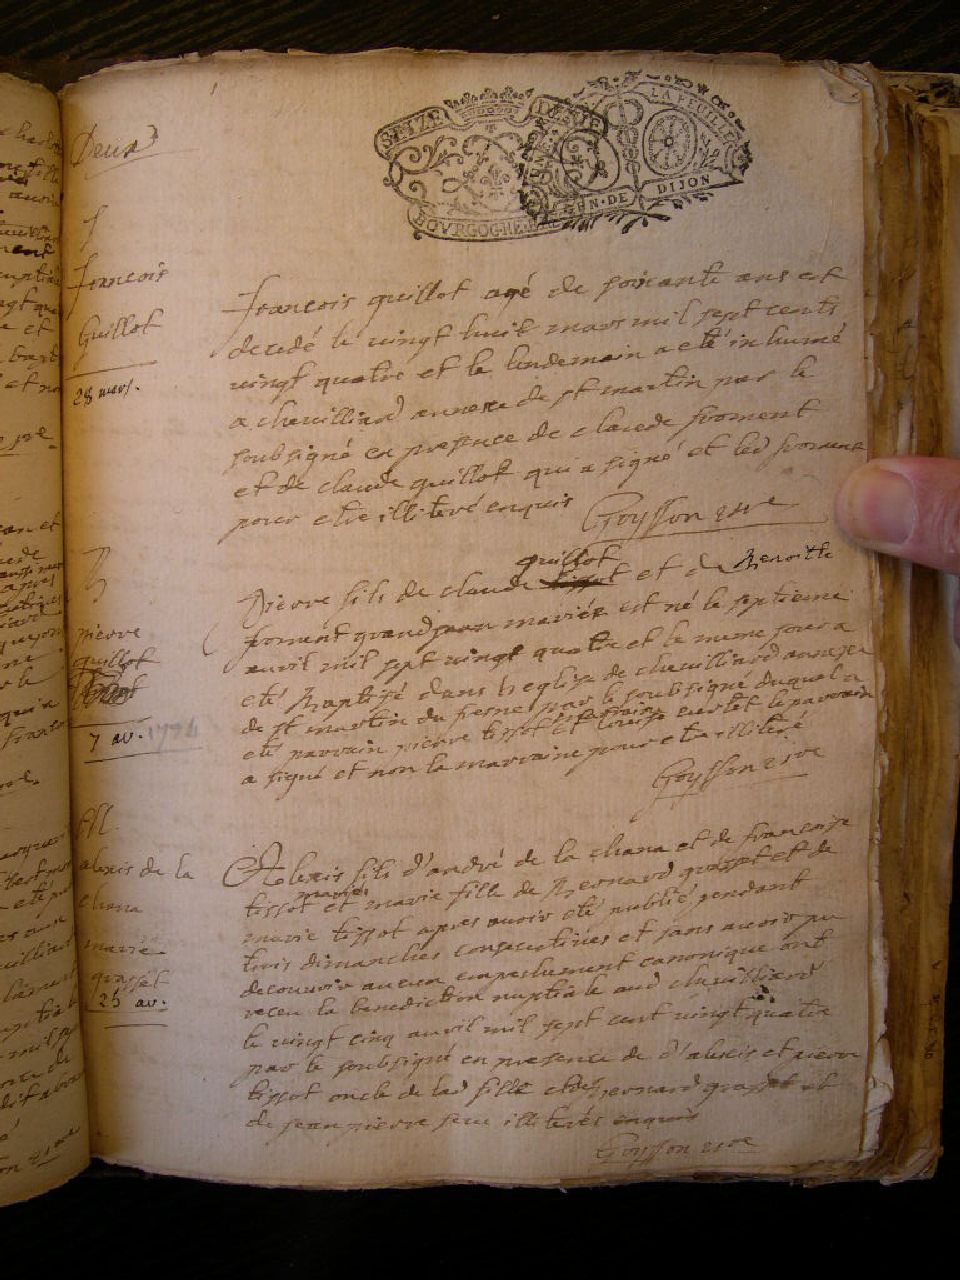 Deux
SEIZE DENIE
LA FEUILLE
BOVRGOGNE
GEN·DE DIJON
francois
Guillot
28 mars.
francois guillot agé de soixante ans est
decedé le vingt huit mars mil sept cents
vingt quatre et le lendemain a eté inhumé
a cheuilliard annexe de st martin par le
soubsigné en presence de claude froment
et de claude guillot qui a signé et led froment
pour etre illiteré enquis Goysson vire
B
pierre
guillot
7 av. 1724
guillot
Pierre fils de claude tissot et de Benoitte
froment grand jean mariés est né le septieme
auril mil sept vingt quatre et le meme jour a
eté Baptisé dans l'eglise de cheuilliard annexe
de st martin du fresne par le soubsigné duquel a
eté parrain pierre tissot et curtet le parrain
a signé et non la marraine pour etre illiteré
Goysson vire
M.
alexis de la
chana
marie
grasset
25 av.
Alexis fils d'andré de la chana et de francoise
tissot mariés et marie fille de Bernard grasset et de
marie tissot apres auoir eté publié pendant
trois dimanches consecutiues et sans auoir pu
decouurir aucun empechement canonique ont
receu la benediction nuptiale aud cheuilliard
le vingt cinq auril mil sept cent vingt quatre
par le soubsigné en presence de d'alexis et pierre
tissot oncle de lad fille et de Bernard grasset et
de jean pierre illiterés enquis
Goysson vire